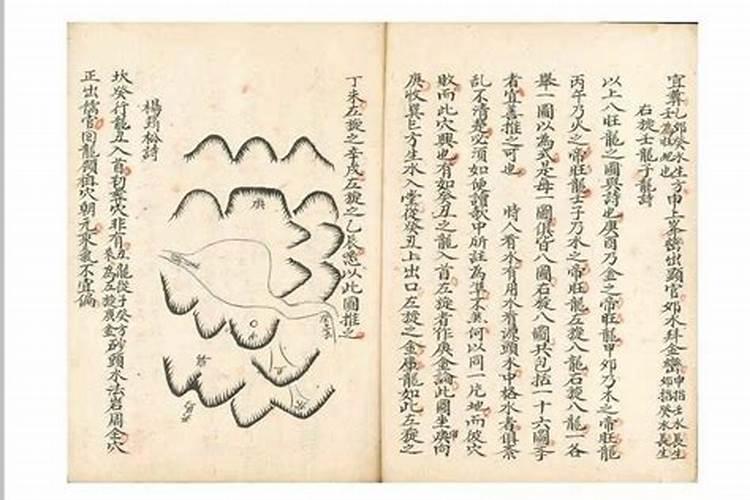 宜葬乙卯癸水生方申上峯巒出顯官卯水拜金鑾申指壬水長生
壬為旺地也卯指癸水長生
右旋壬龍子龍詩
以上八旺龍之圖與詩也庚酉乃金之帝旺龍甲卯乃木之帝旺龍
丙午乃火之帝旺龍壬子乃水之帝旺龍左旋八龍右旋八龍一各
舉一圖以為式是每一圖俱皆八圖右旋八圖共包括一十六圖
者宜善推之可也 時人看水有用水看源頭水中格水者俱
亂不清楚必須如使讀歌中所註為準不差何以同一片地而彼穴
敗而此穴興也有如癸丑之龍入首左旋者作庚金論此圖坐庚向
庚收巽巳方生水入堂從癸丑上出口左旋之金庫龍如此左旋之
丁未左旋之辛戌左旋之乙辰悉以此圖推之
庚
楊筠松詩
坎癸行龍丑入首
穴非有左龍從子癸方
來為左旋庚金
砂頭水法岩周全穴
正出儒官回龍顧祖穴朝元來氣不宜偏